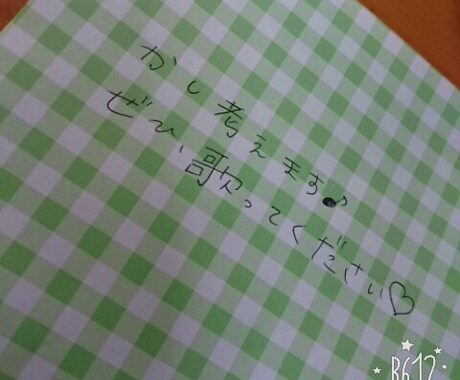 かし考えます♪
ぜひ、歌ってください♡
B612